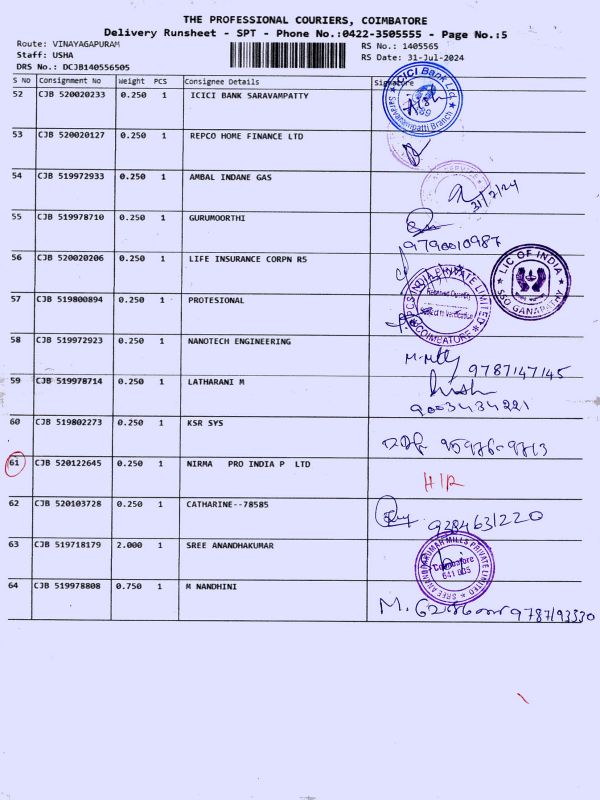 THE PROFESSIONAL COURIERS, COIMBATORE
Delivery Runsheet - SPT - Phone No.:0422-3505555 - Page No.:5
Route: VINAYAGAPURAM
Staff: USHA
DRS No.: DCJB140556505
RS No.: 1405565
RS Date: 31-Jul-2024
S No Consignment No Weight PCS Consignee Details Signature
52 CJB 520020233 0.250 1 ICICI BANK SARAVAMPATTY
ICICI Bank Ltd. Saravanampatti Branch
53 CJB 520020127 0.250 1 REPCO HOME FINANCE LTD
54 CJB 519972933 0.250 1 AMBAL INDANE GAS
31/7/24
55 CJB 519978710 0.250 1 GURUMOORTHI
9790010987
56 CJB 520020206 0.250 1 LIFE INSURANCE CORPN RS
LIC OF INDIA SSO GANAPATHY
57 CJB 519800894 0.250 1 PROTESIONAL
PRIVATE LIMITED COIMBATORE
58 CJB 519972923 0.250 1 NANOTECH ENGINEERING
9787147145
59 CJB 519978714 0.250 1 LATHARANI M
9003434221
60 CJB 519802273 0.250 1 KSR SYS
61 CJB 520122645 0.250 1 NIRMA PRO INDIA P LTD
H/R
62 CJB 520103728 0.250 1 CATHARINE--78585
9284631220
63 CJB 519718179 2.000 1 SREE ANANDHAKUMAR
SREE ANANDHAKUMAR MILLS PRIVATE LIMITED
Coimbatore
641 035
64 CJB 519978808 0.750 1 M NANDHINI
9787193330